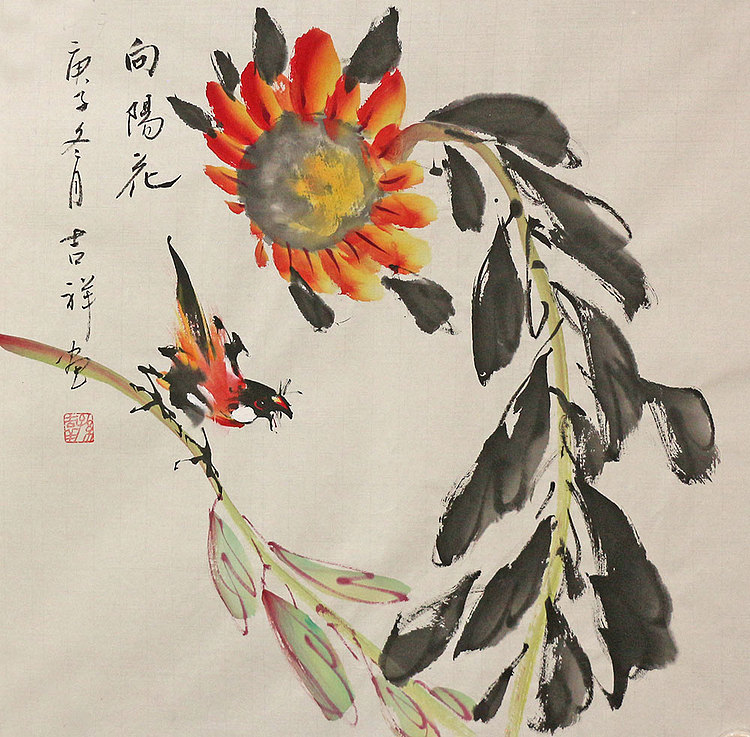 向陽花
庚子冬月
吉祥画